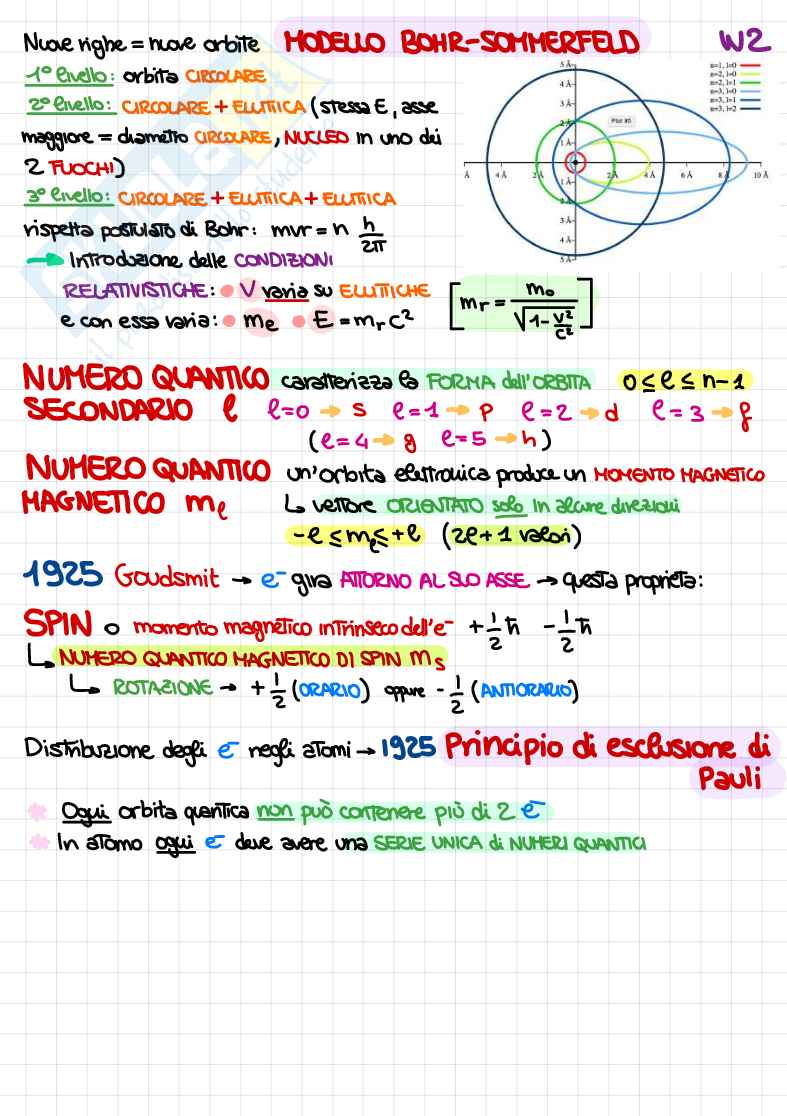 Nuove righe = nuove orbite MODELLO BOHR-SOMMERFELD W2
1° livello: orbita CIRCOLARE
2° livello: CIRCOLARE + ELLITTICA (stessa E, asse
maggiore = diametro CIRCOLARE, NUCLEO in uno dei
2 FUOCHI)
3° livello: CIRCOLARE + ELLITTICA + ELLITTICA
rispetta postulato di Bohr: mvr = n h/2π
→ Introduzione delle CONDIZIONI
RELATIVISTICHE: • V varia su ELLITICHE
e con essa varia: • me • E = mr c² [mr = mo/√(1-v²/c²)]
n=1, l=0
n=2, l=0
n=2, l=1
n=3, l=0
n=3, l=1
n=3, l=2
5 Å
4 Å
3 Å
2 Å
1 Å
Plot #5
Å 4 Å 2 Å 2 Å 4 Å 6 Å 8 Å 10 Å
1 Å
2 Å
3 Å
4 Å
5 Å
NUMERO QUANTICO caratterizza la FORMA dell'ORBITA 0 ≤ l ≤ n-1
SECONDARIO l l=0 → s l=1 → p l=2 → d l=3 → f
(l=4 → g l=5 → h)
NUMERO QUANTICO un'orbita elettronica produce un MOMENTO MAGNETICO
MAGNETICO ml ↳ vettore ORIENTATO solo in alcune direzioni
-l ≤ ml ≤ +l (2l+1 valori)
1925 Goudsmit → e⁻ gira ATTORNO AL SUO ASSE → questa proprietà:
SPIN o momento magnetico intrinseco dell'e⁻ +1/2 ħ -1/2 ħ
↳ NUMERO QUANTICO MAGNETICO DI SPIN ms
↳ ROTAZIONE → +1/2 (ORARIO) oppure -1/2 (ANTIORARIO)
Distribuzione degli e⁻ negli atomi → 1925 Principio di esclusione di
Pauli
* Ogni orbita quantica non può contenere più di 2 e⁻
* In atomo ogni e⁻ deve avere una SERIE UNICA di NUMERI QUANTICI